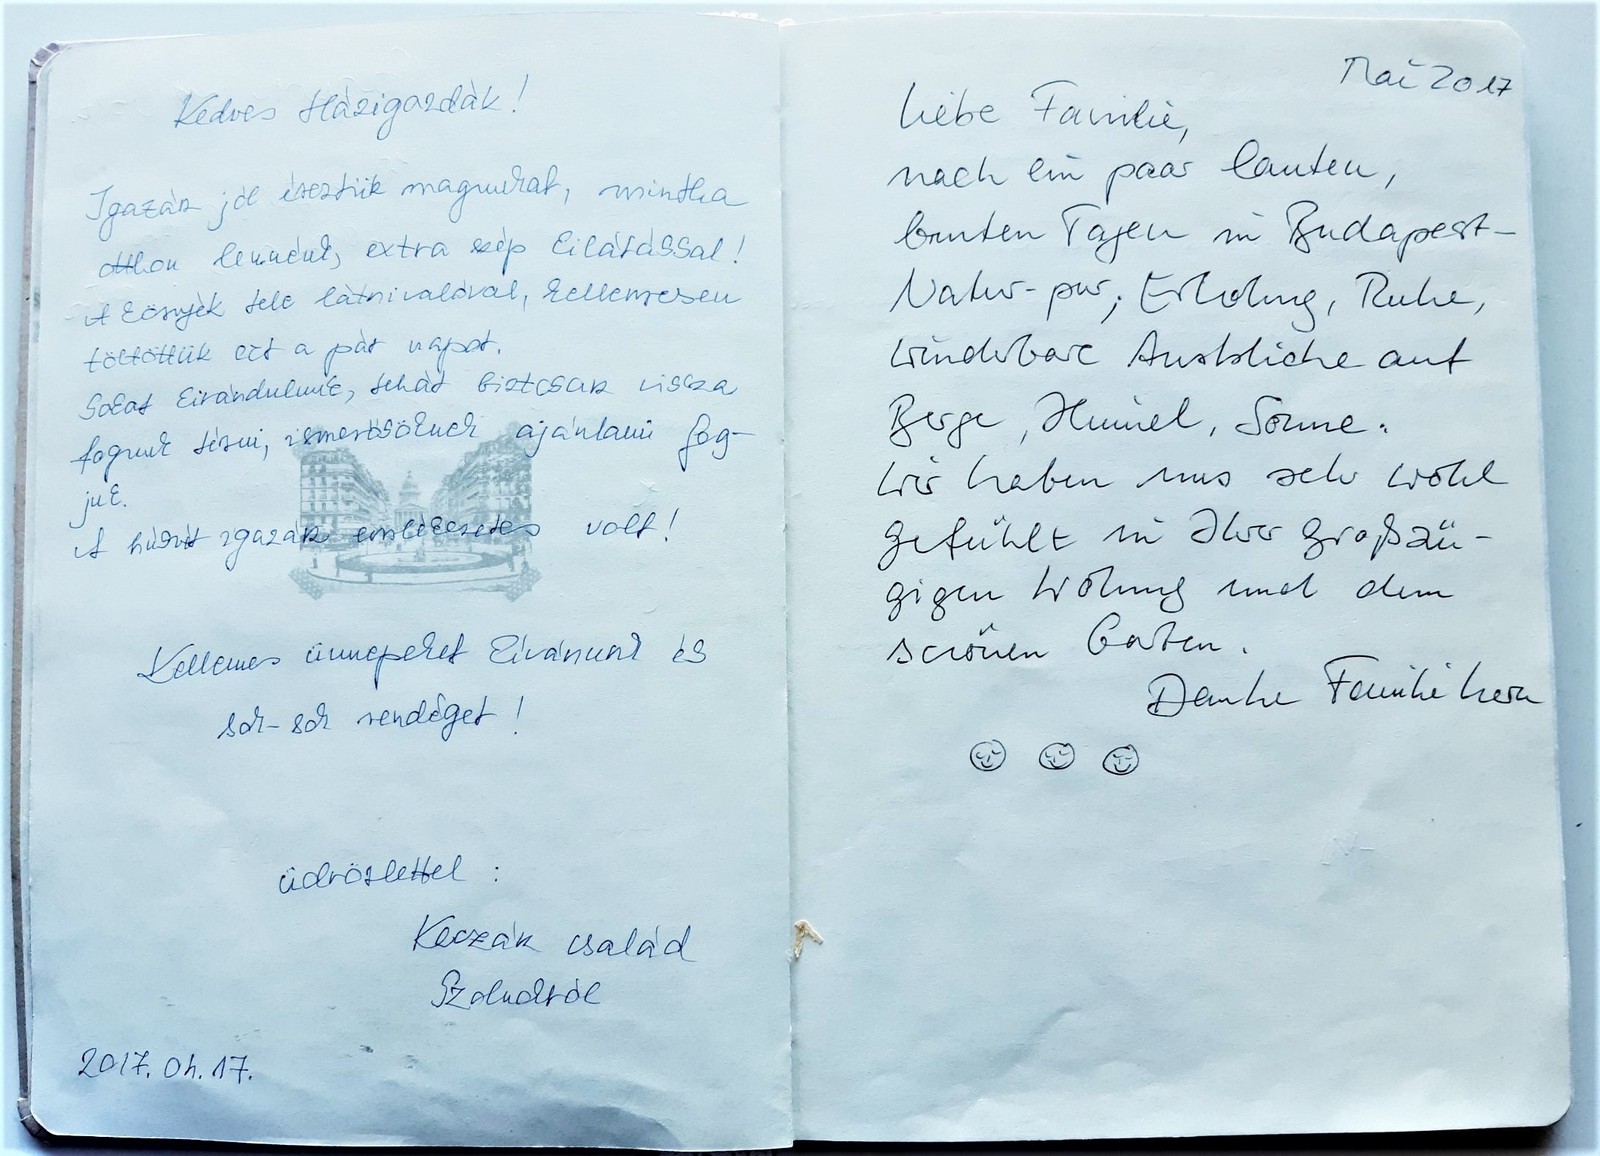 Kedves Házigazdák!
Igazán jól éreztük magunkat, mintha
otthon lennénk, extra szép kilátással!
A környék tele látnivalóval, kellemesen
töltöttük ezt a pár napot.
Sokat kirándulunk, tehát biztosan vissza
fogunk térni, ismerősöknek ajánlani fog-
juk.
A húsvét igazán emlékezetes volt!
Kellemes ünnepeket kívánunk és
sok-sok vendéget!
üdvözlettel:
Keczán család
Szolnokról
2017. 04. 17.
Mai 2017
Liebe Familie,
nach ein paar lauten,
bunten Tagen in Budapest-
Natur-pur, Erholung, Ruhe,
wunderbare Ausblicke auf
Berge, Himmel, Sonne.
Wir haben uns sehr wohl
gefühlt in Ihrer großzü-
gigen Wohnung und dem
schönen Garten.
Danke Familie Kern